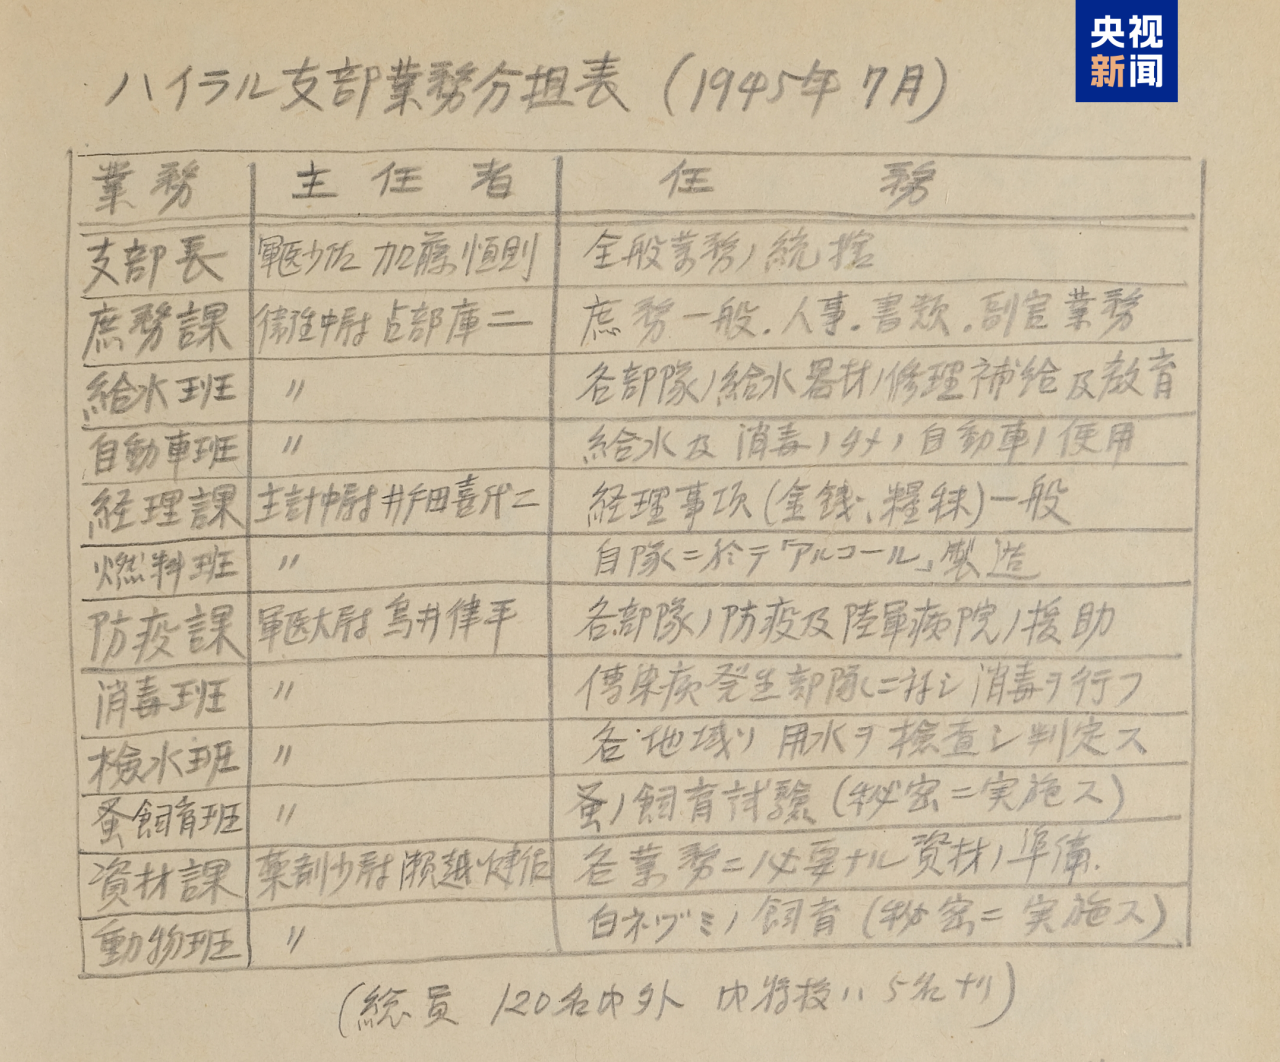 央视
新闻
ハイラル支部業務分担表(1945年7月)
業務 主任者 任務
支部長 軍医少佐 加藤恒則 全般業務ノ統括
庶務課 衛生中尉 占部庫二 庶務一般.人事.書類.副官業務
給水班 〃 各部隊ノ給水器材ノ修理補給及教育
自動車班 〃 給水及消毒ノタメノ自動車ノ使用
経理課 主計中尉 井戸田喜代二 経理事項(金銭、糧秣)一般
燃料班 〃 自隊ニ於テ「アルコール」製造
防疫課 軍医大尉 鳥井律平 各部隊ノ防疫及陸軍病院ノ援助
消毒班 〃 傳染病発生部隊ニ対シ消毒ヲ行フ
検水班 〃 各地域ノ用水ヲ検査シ判定ス
蚤飼育班 〃 蚤ノ飼育試験(秘密ニ実施ス)
資材課 薬剤少尉 瀬越健佑 各業務ニ必要ナル資材ノ準備.
動物班 〃 白ネヅミノ飼育(秘密ニ実施ス)
(総員 120名内外 内将校ハ5名ナリ)